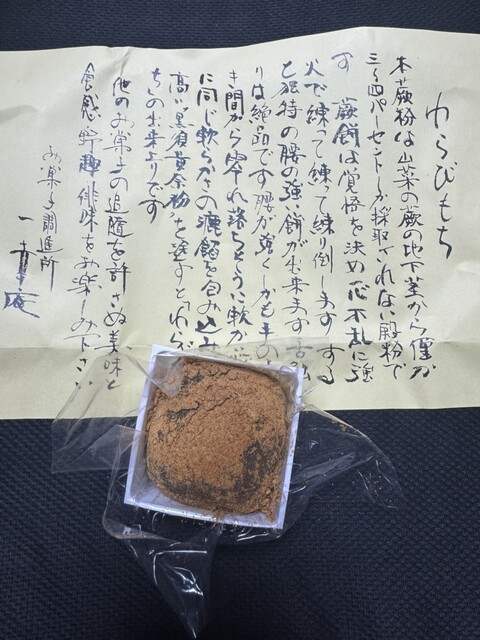 わらびもち
本蕨粉は山菜の蕨の地下茎から僅か
三〜四パーセントしか採取されない澱粉で
す 蕨餅は覚悟を決め一心不乱に強
火で練って練って練り倒します する
と独特の腰の強い餅が出来ます 舌触
りは絶品です 腰が強くしかも手の
き間から零れ落ちそうに軟か
に同じ軟らかさの漉餡を包み込み
高い黒須黄奈粉を塗すとわら
ちの出来上りです
他のお菓子の追随を許さぬ美味と
食感 野趣 俳味をお楽しみ下さい
お菓子調進所
一幸庵